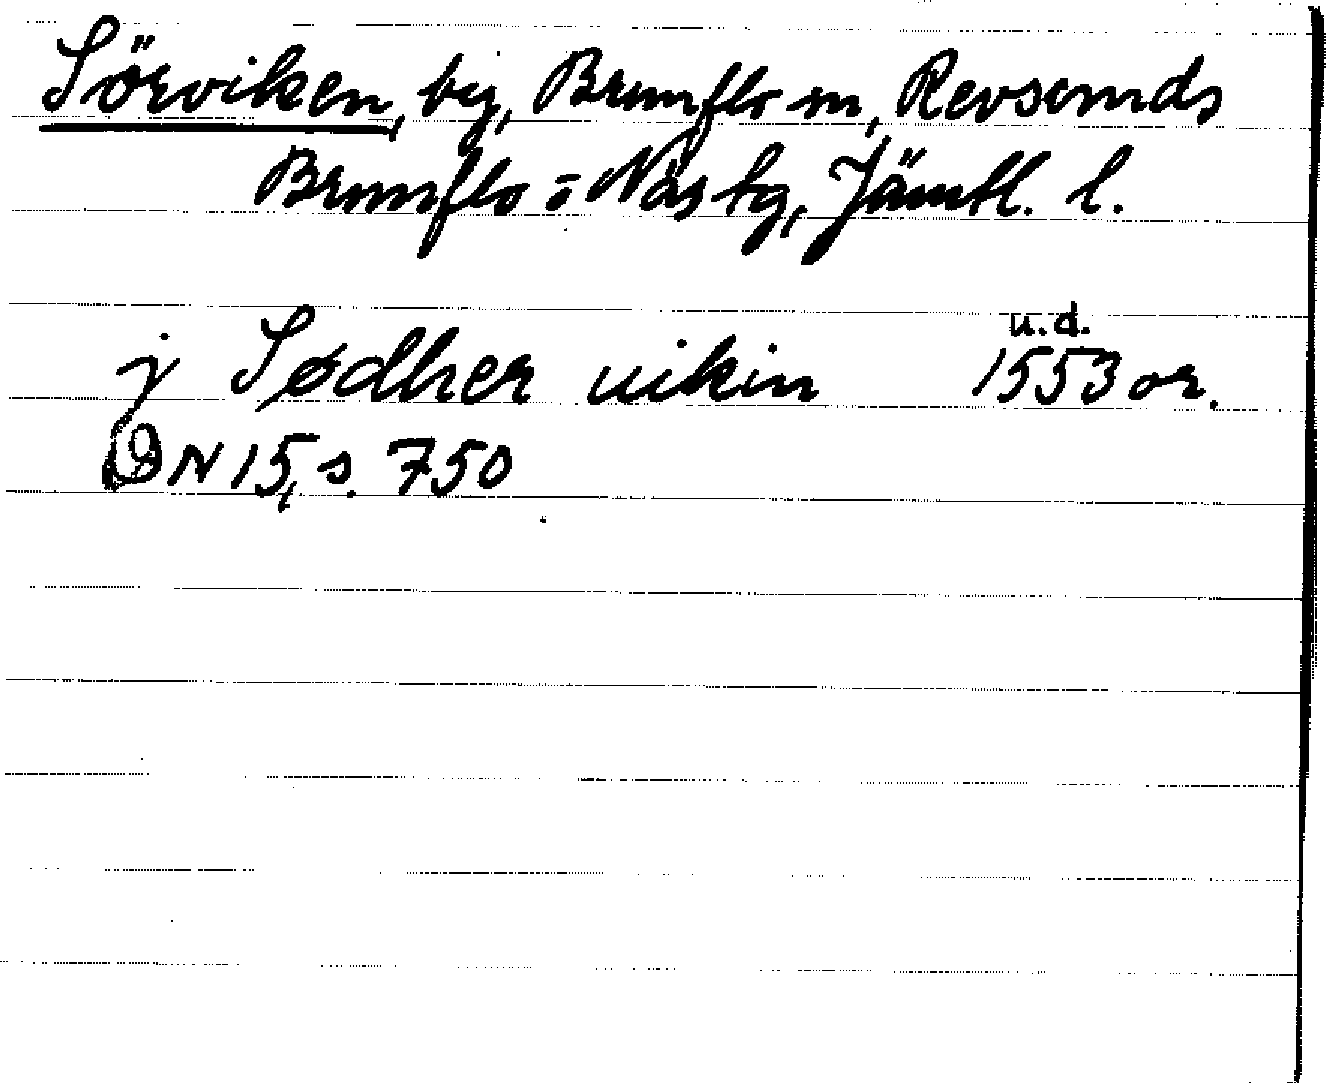 Sörviken, by, Brunflo sn, Revsunds
Brunflo o Näs tg, Jämtl. l.
j Sødher uikin u.d. 1553 or.
DN 15, s. 750